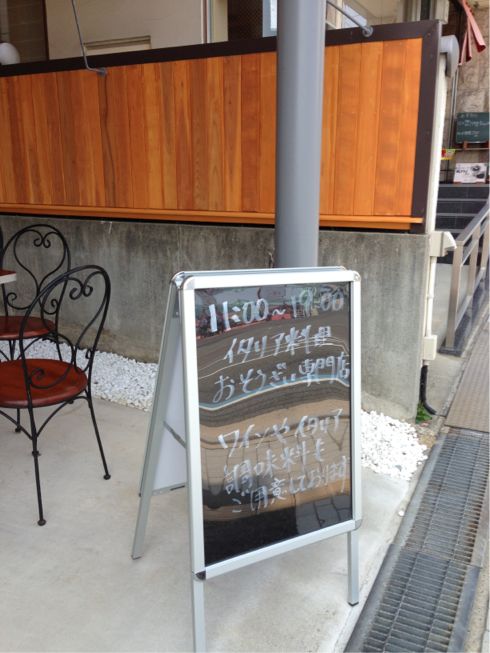 11:00~19:00
イタリア料理
おそうざい専門店
ワインやイタリア
調味料も
ご用意しております